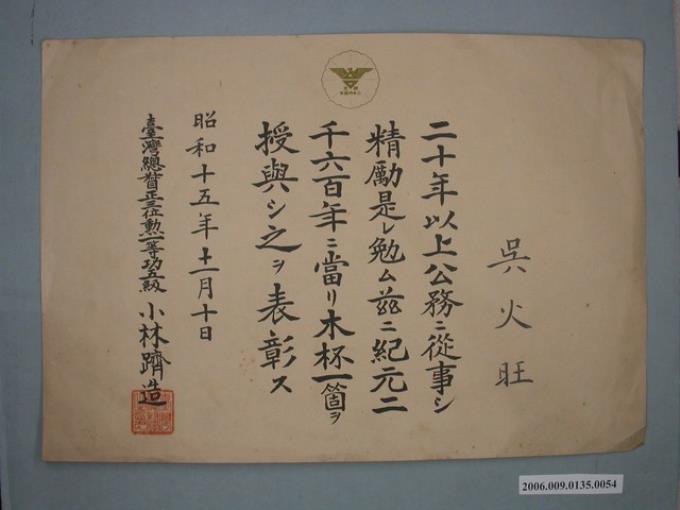 吳火旺
二十年以上公務ニ從事シ
精勵是レ勉ム茲ニ紀元二
千六百年ニ當リ木杯一箇ヲ
授與シ之ヲ表彰ス
昭和十五年十一月十日
臺灣總督正三位勲一等功五級 小林躋造
2006.009.0135.0054